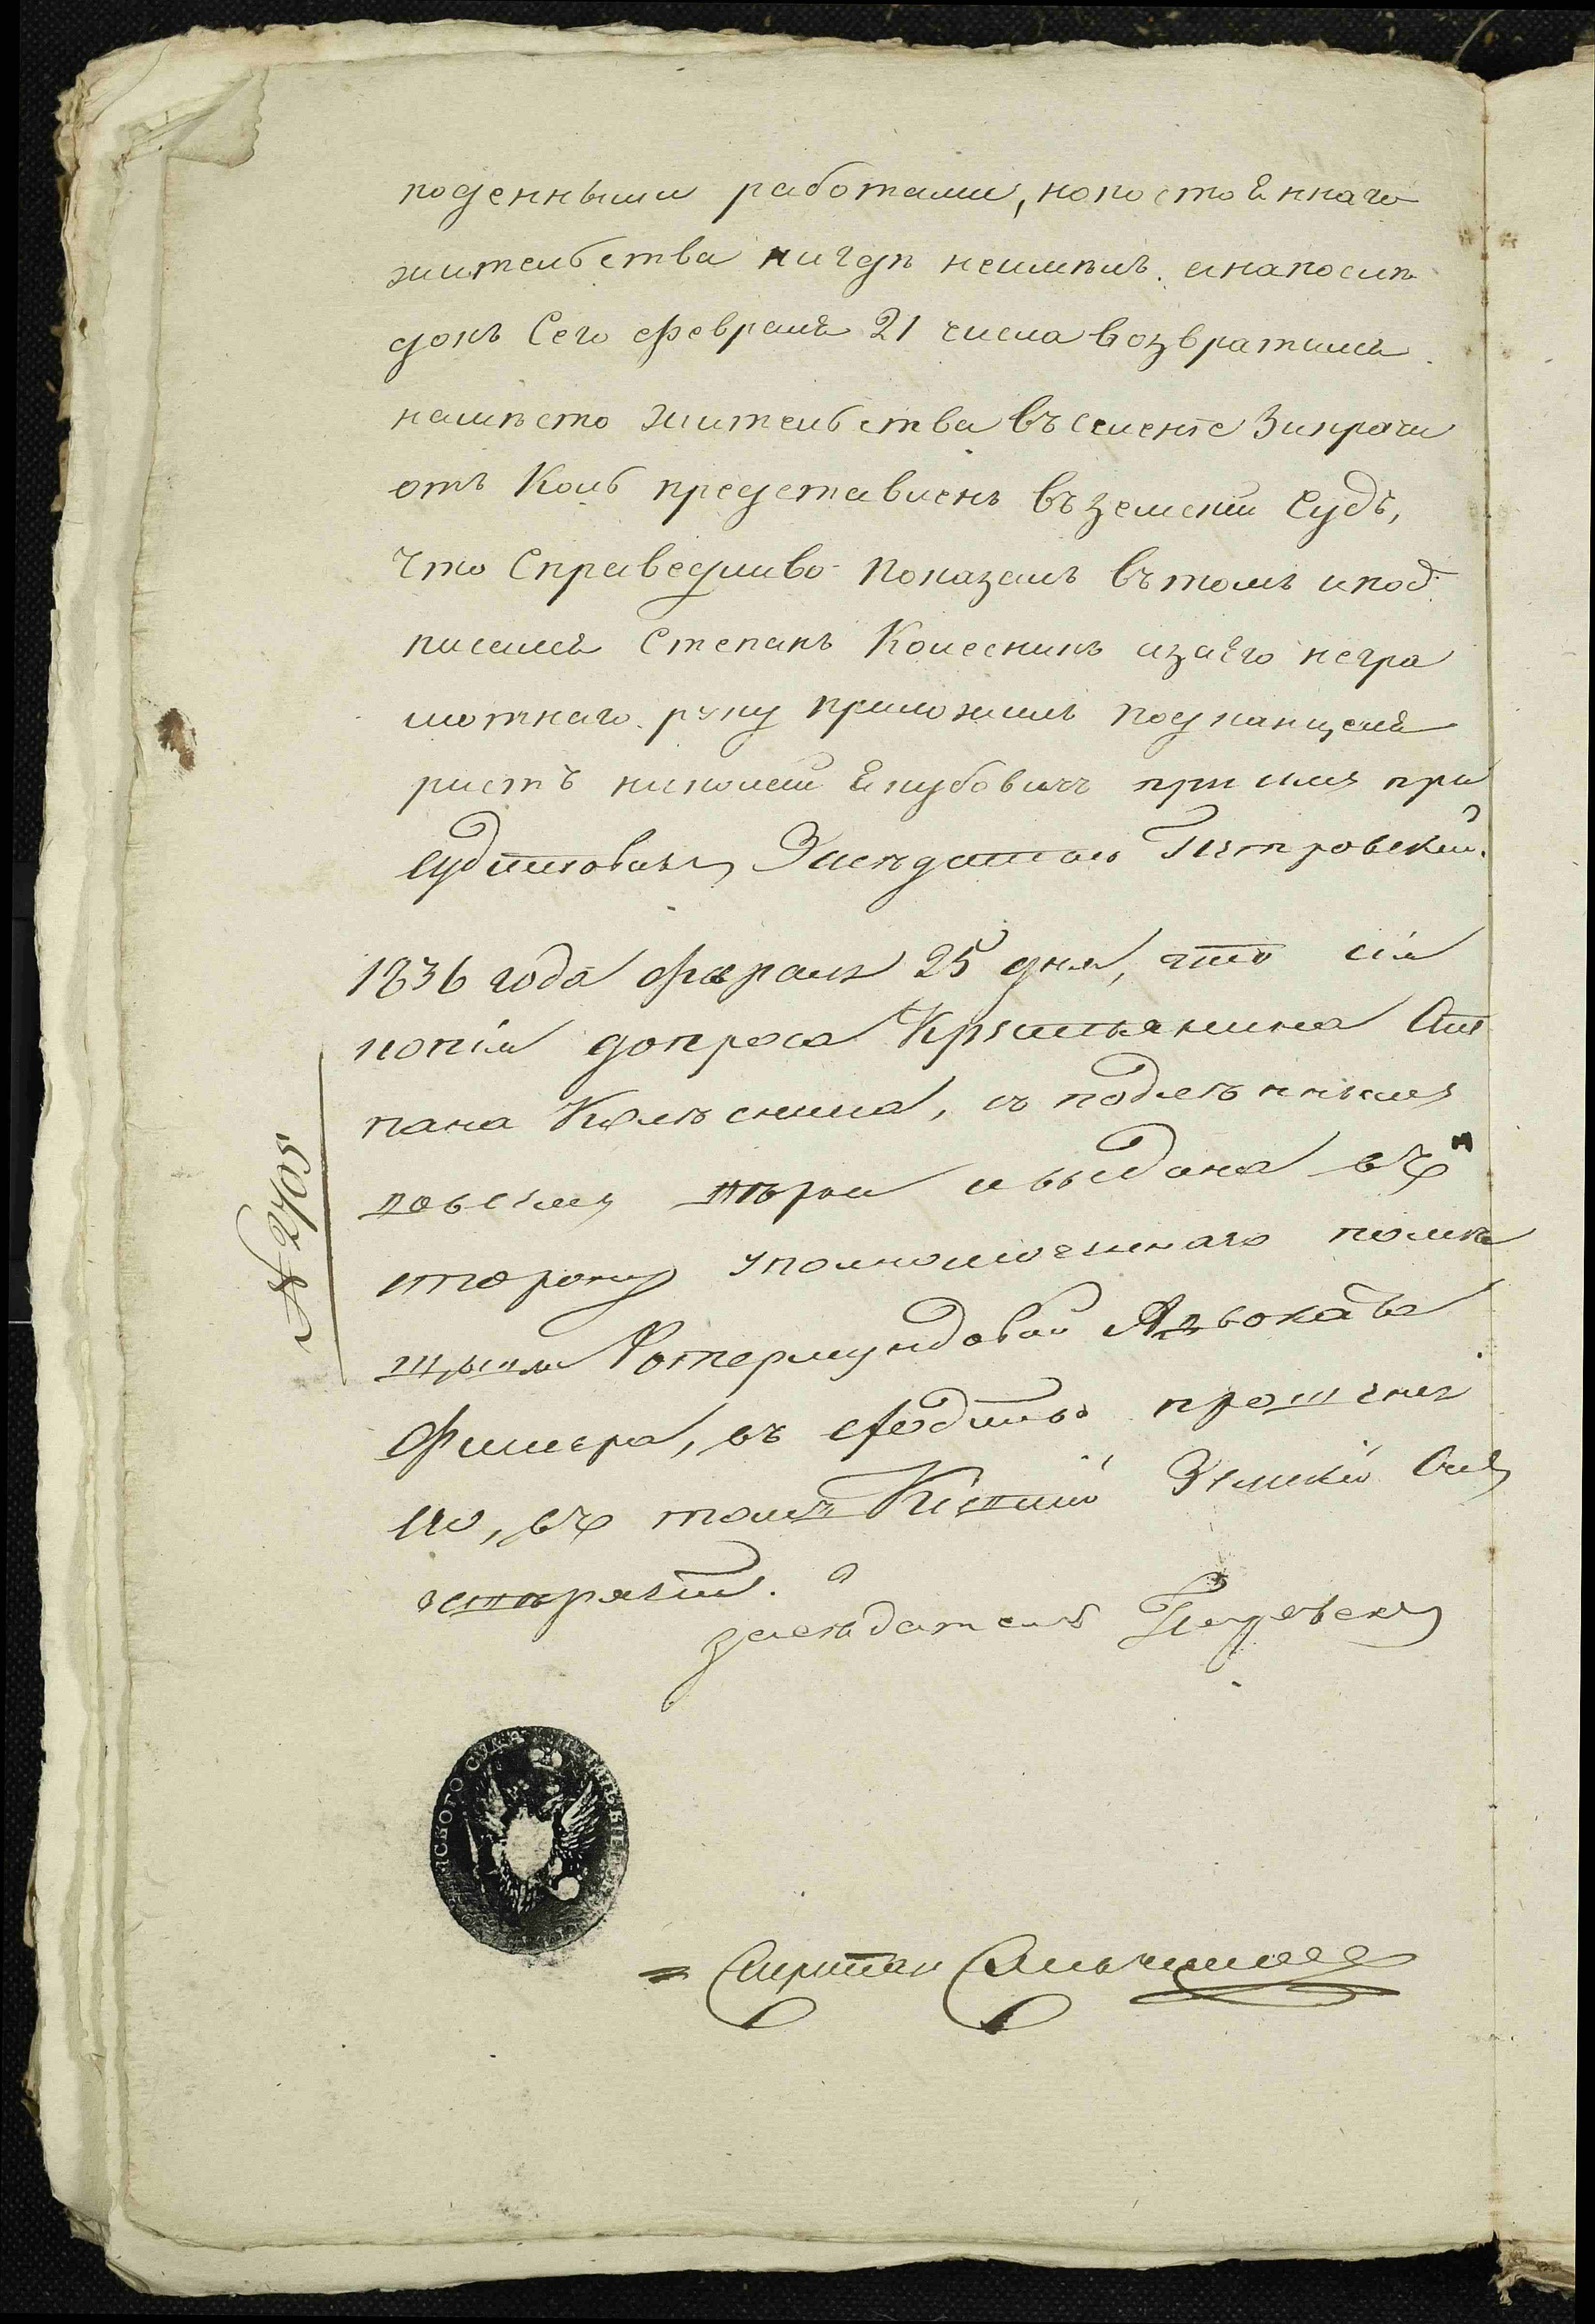 поденными работами, нопостоянаго
жительства нигдѣ неимѣлъ. инапослѣ
докъ Сего февраля 21 числа возвратился
намѣсто жительства въселеніе
отъ Коль представленъ въземскій Судъ,
что Справедливо показалъ вътомъ ипод
писался Степанъ Колесникъ изаего негра
мотнаго руку приложилъ подканцеля
ристъ николай Якубовичъ при
Засѣдатель Петровскій.
1836 года февраля 25 дня, что сія
копія допроса Крестьянина Сте
пана Колѣсника, съ подлѣннымъ
вѣрна и выдана въ
сторону уполномоченнаго помѣ
щицы Ротермундовой Адвоката
Фишера, въ слѣдствіе прошенія
его, въ томъ Земскій Судъ
засѣдатель Петровскій
№ 2705
СКОГО СУДА
Секретарь